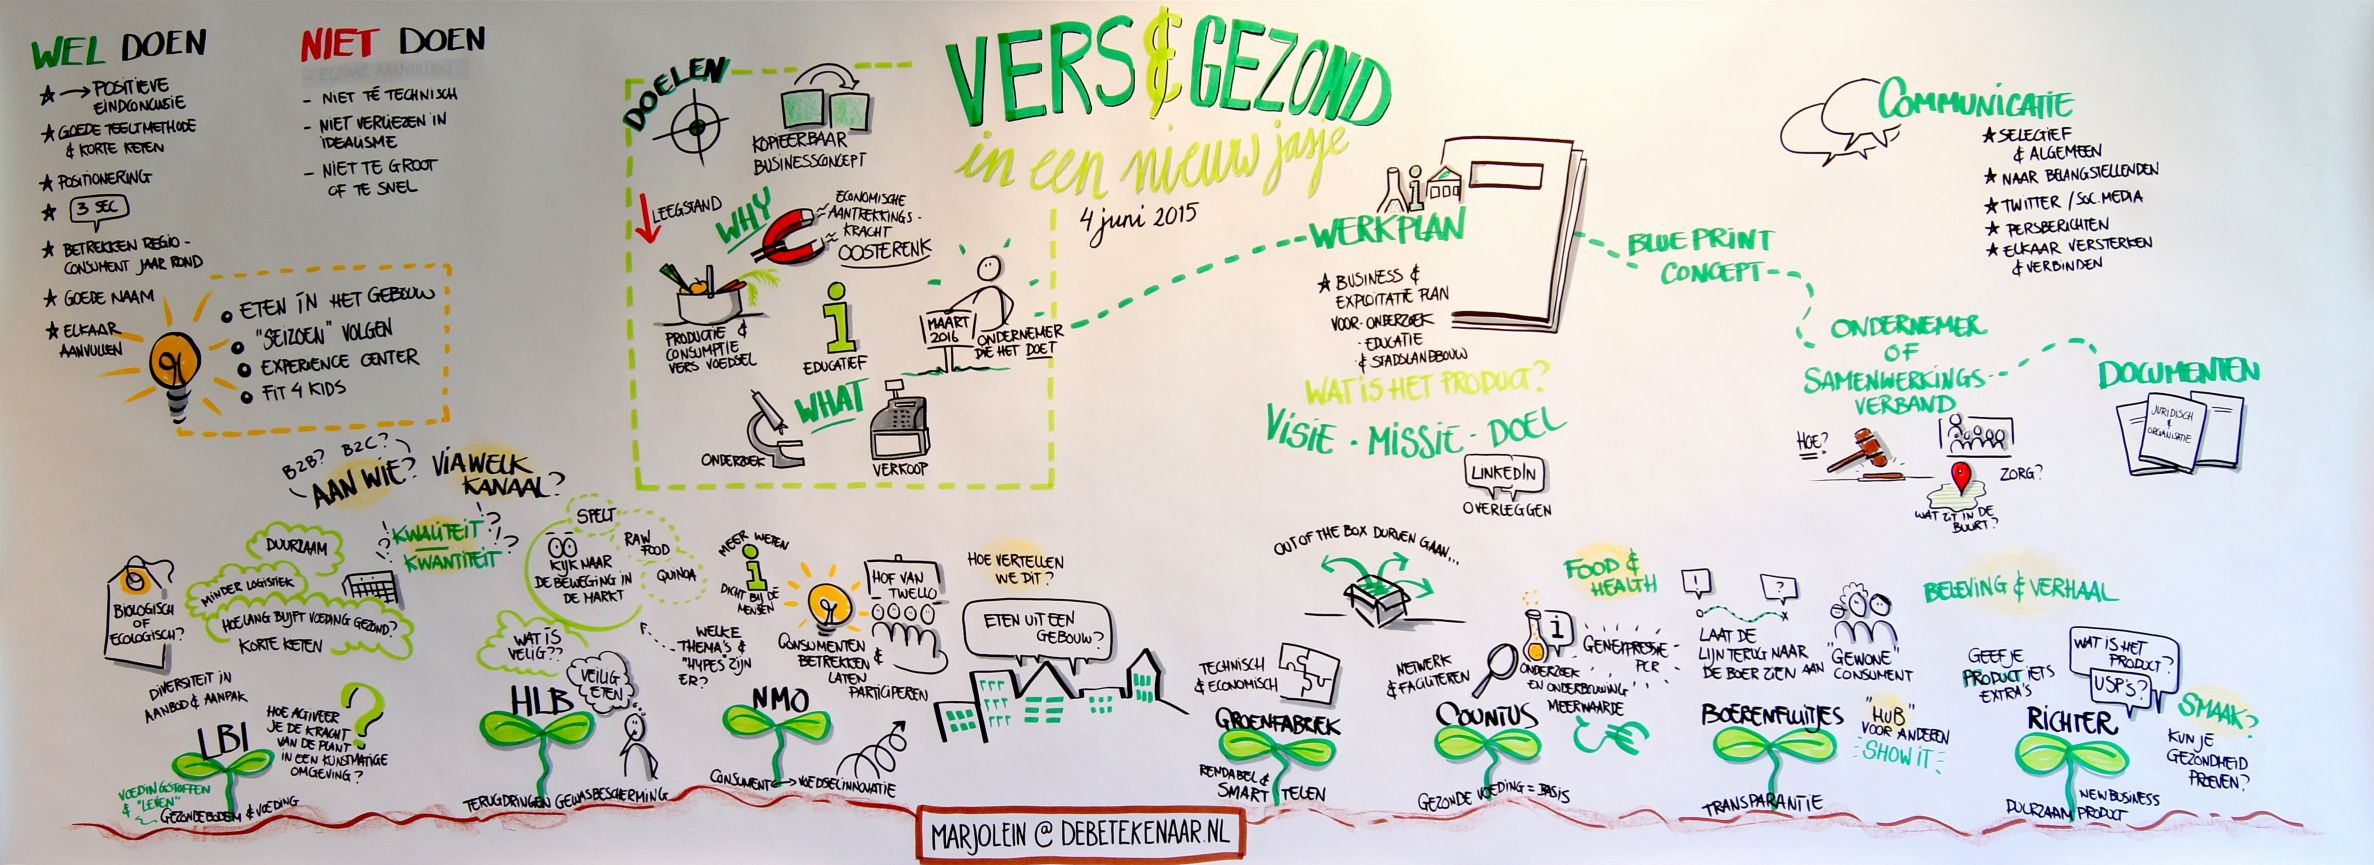 WEL DOEN
→ POSITIEVE
EINDCONCLUSIE
GOEDE TEELTMETHODE
& KORTE KETEN
POSITIONERING
3 SEC
BETREKKEN REGIO-
CONSUMENT JAAR ROND
GOEDE NAAM
ELKAAR
AANVULLEN
NIET DOEN
- NIET TÉ TECHNISCH
- NIET VERLIEZEN IN
IDEALISME
- NIET TE GROOT
OF TE SNEL
• ETEN IN HET GEBOUW
• "SEIZOEN" VOLGEN
• EXPERIENCE CENTER
• FIT 4 KIDS
DOELEN
KOPIEERBAAR
BUSINESSCONCEPT
LEEGSTAND
WHY
ECONOMISCHE
AANTREKKINGS-
KRACHT
OOSTERENK
PRODUCTIE &
CONSUMPTIE
VERS VOEDSEL
EDUCATIEF
MAART
2016
ONDERNEMER
DIE HET DOET
WHAT
ONDERZOEK
VERKOOP
VERS & GEZOND
in een nieuw jasje
4 juni 2015
WERKPLAN
BUSINESS &
EXPLOITATIE PLAN
VOOR-ONDERZOEK
- EDUCATIE
- & STADSLANDBOUW
WAT IS HET PRODUCT?
VISIE - MISSIE - DOEL
LINKEDIN
OVERLEGGEN
BLUE PRINT
CONCEPT
COMMUNICATIE
SELECTIEF
& ALGEMEEN
NAAR BELANGSTELLENDEN
TWITTER / SOC. MEDIA
PERSBERICHTEN
ELKAAR VERSTERKEN
& VERBINDEN
ONDERNEMER
OF
SAMENWERKINGS-
VERBAND
HOE?
ZORG?
WAT ZIT IN DE
BUURT?
DOCUMENTEN
JURIDISCH
&
ORGANISATIE
B2B? B2C?
AAN WIE?
VIA WELK
KANAAL?
KWALITEIT?
KWANTITEIT
BIOLOGISCH
OF
ECOLOGISCH?
DUURZAAM
MINDER LOGISTIEK
HOE LANG BLIJFT VOEDING GEZOND?
KORTE KETEN
DIVERSITEIT IN
AANBOD & AANPAK
LBI
HOE ACTIVEER
JE DE KRACHT
VAN DE PLANT
IN EEN KUNSTMATIGE
OMGEVING?
VOEDINGSTOFFEN
& "LEVEN"
GEZONDE BODEM & VOEDING
SPELT
RAW
FOOD
QUINOA
KIJK NAAR
DE BEWEGING IN
DE MARKT
WAT IS
VEILIG??
VEILIG
ETEN
HLB
TERUGDRINGEN GEWASBESCHERMING
WELKE
THEMA'S &
"HYPES" ZIJN
ER?
MEER WETEN
DICHT BIJ DE
MENSEN
HOF VAN
TWELLO
CONSUMENTEN
BETREKKEN &
LATEN
PARTICIPEREN
NMO
CONSUMENT ↔ VOEDSELINNOVATIE
HOE VERTELLEN
WE DIT?
ETEN UIT EEN
GEBOUW?
OUT OF THE BOX DURVEN GAAN...
TECHNISCH
& ECONOMISCH
GROENFABRIEK
RENDABEL &
SMART TELEN
NETWERK
& FACILITEREN
FOOD &
HEALTH
ONDERZOEK
EN ONDERBOUWING
MEERWAARDE
GENEXPRESSIE
PCR
COUNTUS
GEZONDE VOEDING = BASIS
!
?
LAAT DE
LIJN TERUG NAAR
DE BOER ZIEN AAN
"GEWONE"
CONSUMENT
BOERENFLUITJES
"HUB"
VOOR ANDEREN
SHOW IT
TRANSPARANTIE
BELEVING & VERHAAL
GEEF JE
PRODUCT IETS
EXTRA'S
WAT IS HET
PRODUCT?
USP'S?
RICHTER
SMAAK?
KUN JE
GEZONDHEID
PROEVEN?
NEW BUSINESS
DUURZAAM PRODUCT
MARJOLEIN @ DEBETEKENAAR.NL